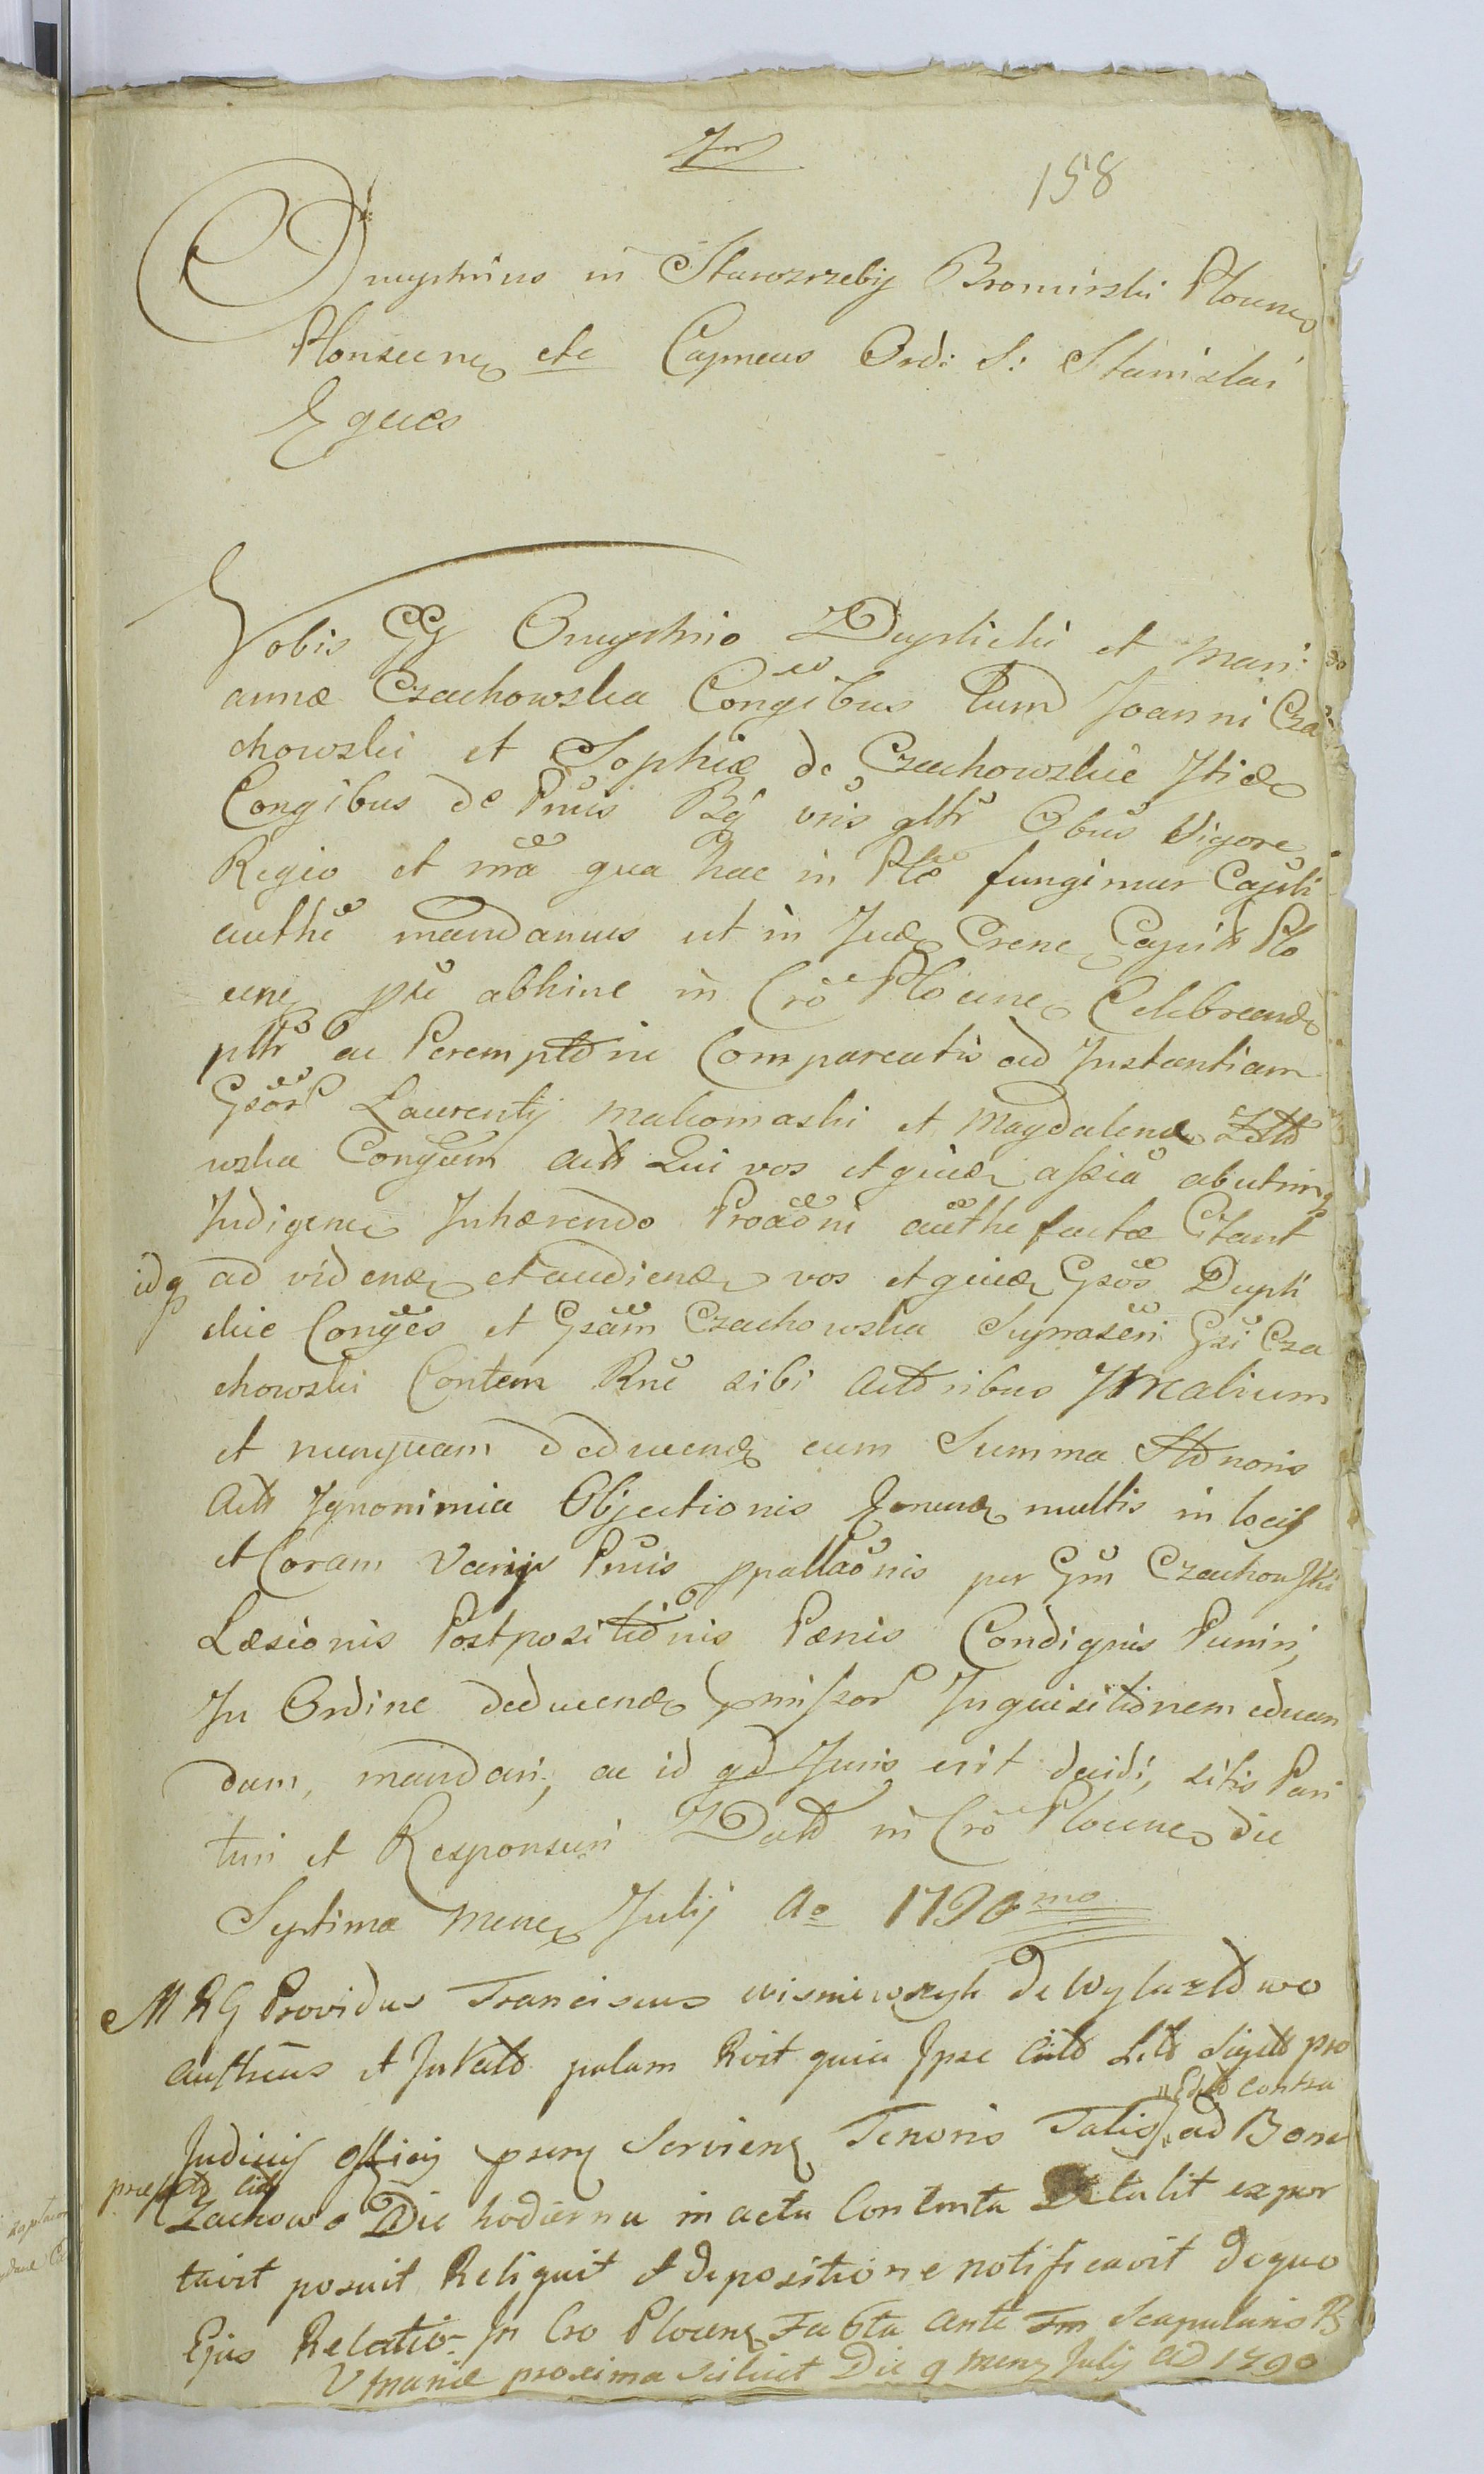 158
Onuphrius in Starozrzeby Bromirski Plocen
Plonscen etc Capneus Ord: S: Stanislai
Eques
Vobis GG Onuphrio Duplicki et Mari:
annæ Czachowska Congibus Tum Joanni Cza
chowski et Sophiæ de Czachowskie
Congibus de Pnuis vris gltr Obus Vigore
Regio et mã qua hac in Pte fungimur Capli
authe mandamus ut in Jud Crene Capit Plo
cen abhinc in Cro Plocene Celebrand
pltr ac Peremptorie Compareatis ad Instantiam
Gsor Laurentij Makomaski et Magdalenæ
wska Congum Act Qui vos et quid abutim
Indigene Inhærendo Proaoni authe factæ Citant
idq ad vidend et audiend vos et quid Gsos Dupli
ckie Conges et Gsam Czachowska Gsi Cza
chowski Contem Rne sibi Actoribus Irealium
et nunquam deducend cum Summa Honoris
Act Ignonimia Objectionis multis in locis
et Coram Varijs Pnuis ppallaonis per Gm Czachowski
Læsionis Postpositionis Pænis Condignis Puniri,
In Ordine deducend pmissor Inquisitionem educen
dam, mandari, ac id qd Juris erit decidi, sitis Pari
turi et Responsuri Dat in Cro Plocene die
Septima Mene Julij Ao 1790mo
M R G Providus Franciscus wisniewszyk De Wylazlowo
authcus et Jurat palam Rvit quia Ipse Lit Sigill pro
Edit Contra
Judicij Officij psens Serviens Tenoris Talis ad Bona
præfat Cit
Czachowo Die hodierna in actu Contenta Detulit expor
tavit posuit Reliquit et de positione notificavit de quo
Ejus Relatio In Cro Plocens Facta Ante Fm Scapularis B
V Mariæ proxima scilicet Die 9 Mens Julij AD 1790